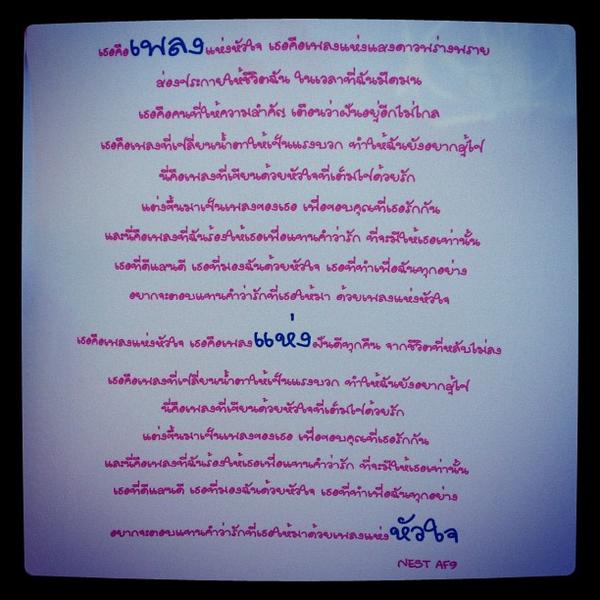 เธอคือเพลงแห่งหัวใจ เธอคือเพลงแห่งแสงดาวพร่างพราย
ส่องประกายให้ชีวิตฉัน ในเวลาที่ฉันมืดมน
เธอคือคนที่ให้ความสำคัญ เตือนว่าฝันอยู่อีกไม่ไกล
เธอคือเพลงที่เปลี่ยนน้ำตาให้เป็นแรงบวก ทำให้ฉันยังอยากสู้ไป
นี่คือเพลงที่เขียนด้วยหัวใจที่เต็มไปด้วยรัก
แต่งขึ้นมาเป็นเพลงของเธอ เพื่อขอบคุณที่เธอรักกัน
และนี่คือเพลงที่ฉันร้องให้เธอเพื่อแทนคำว่ารัก ที่จะมีให้เธอเท่านั้น
เธอที่ดีแสนดี เธอที่มองฉันด้วยหัวใจ เธอที่ทำเพื่อฉันทุกอย่าง
อยากจะตอบแทนคำว่ารักที่เธอให้มา ด้วยเพลงแห่งหัวใจ
เธอคือเพลงแห่งหัวใจ เธอคือเพลงแห่งฝันดีทุกคืน จากชีวิตที่หลับไม่ลง
เธอคือเพลงที่เปลี่ยนน้ำตาให้เป็นแรงบวก ทำให้ฉันยังอยากสู้ไป
นี่คือเพลงที่เขียนด้วยหัวใจที่เต็มไปด้วยรัก
แต่งขึ้นมาเป็นเพลงของเธอ เพื่อขอบคุณที่เธอรักกัน
และนี่คือเพลงที่ฉันร้องให้เธอเพื่อแทนคำว่ารัก ที่จะมีให้เธอเท่านั้น
เธอที่ดีแสนดี เธอที่มองฉันด้วยหัวใจ เธอที่ทำเพื่อฉันทุกอย่าง
อยากจะตอบแทนคำว่ารักที่เธอให้มาด้วยเพลงแห่งหัวใจ
NEST AF9